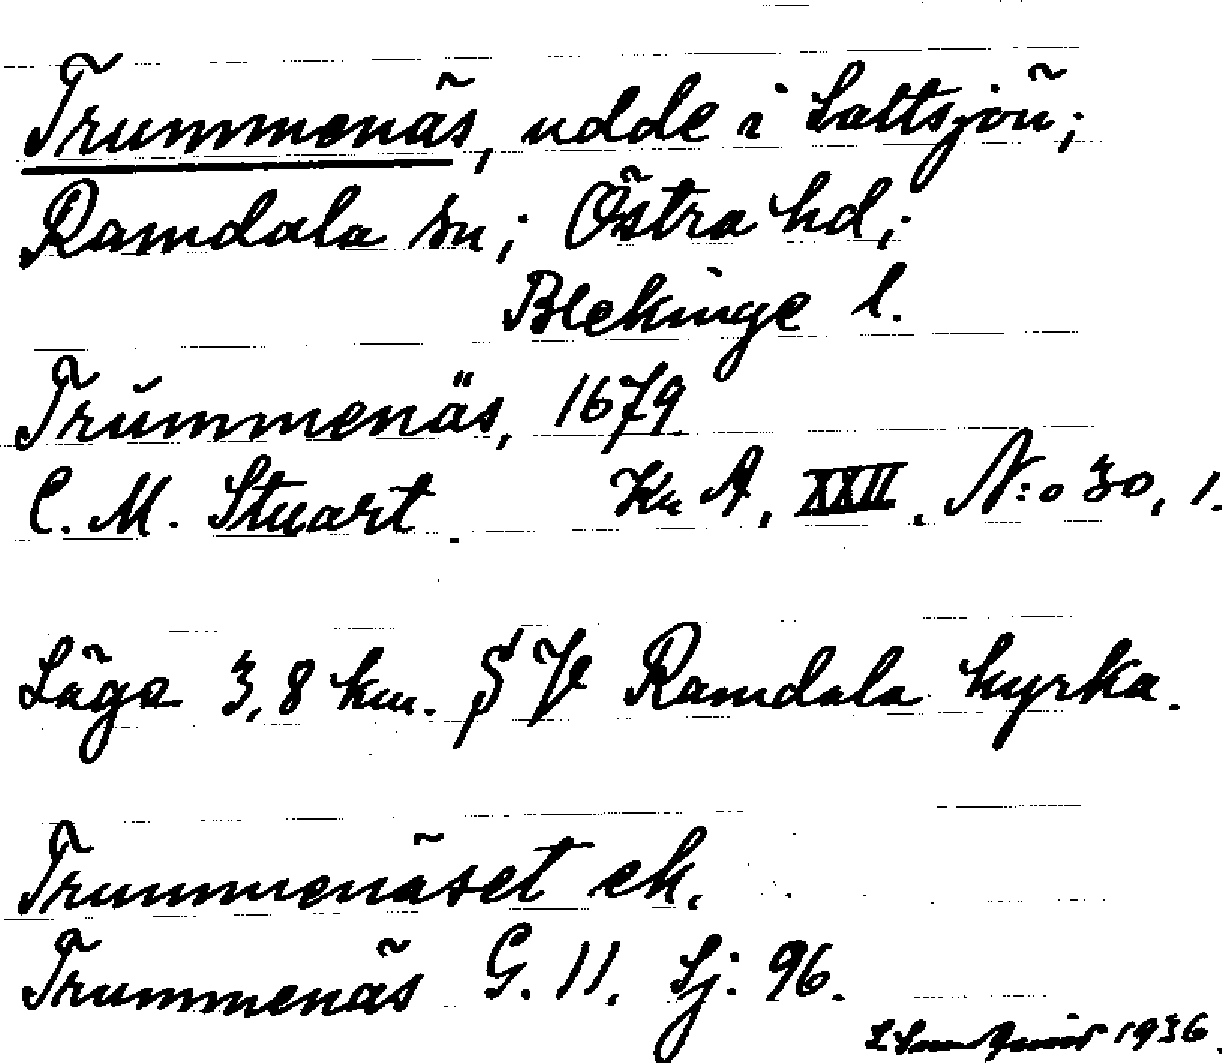 Trummenäs, udde i Saltsjön;
Ramdala sn; Östra hd;
Blekinge l.
Trŭmmenäs, 1679.
C. M. Stuart. Kr A, XXII. N:o 30, 1.
Läge 3,8 km. S V Ramdala kyrka.
Trummenäset ek.
Trummenäs G. 11. Sj: 96.
1936.